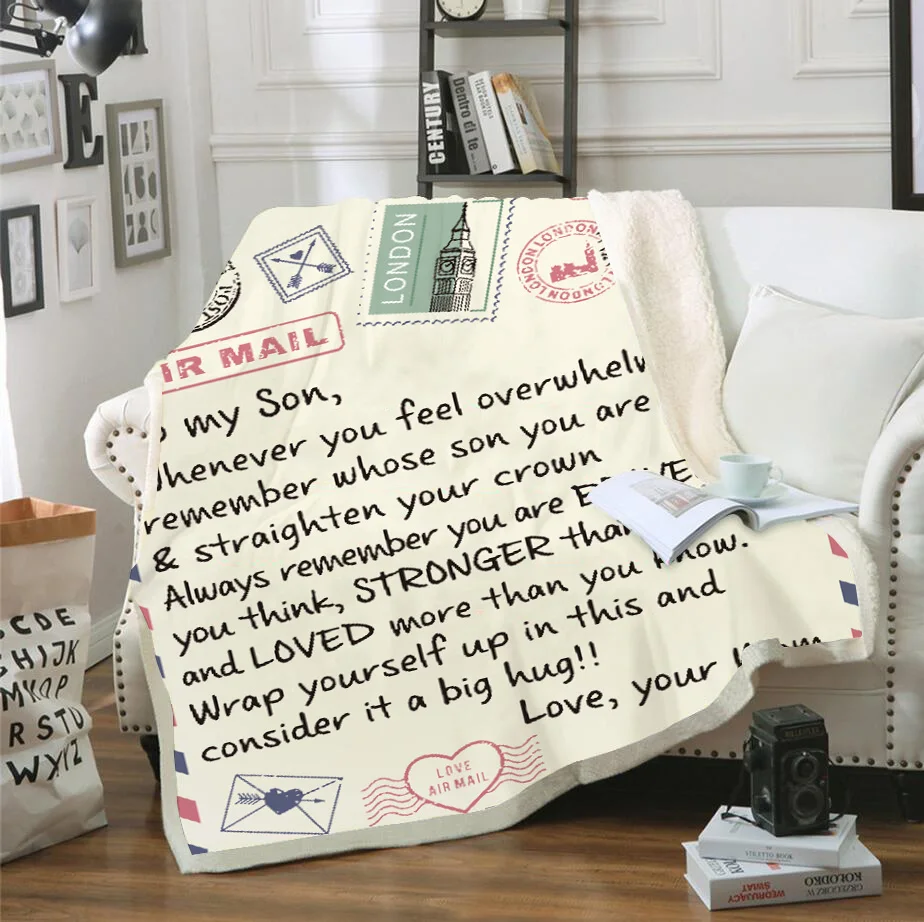 E
CENTURY
Dentro di te
DESIGN HOTELS
YEAR BOOK
LONDON
LONDON LONDON LONDON LONDON
IR MAIL
my Son,
whenever you feel overwhelm
remember whose son you are
& straighten your crown
Always remember you are BRAVE
you think, STRONGER than
and LOVED more than you know.
Wrap yourself up in this and
consider it a big hug!!
Love, your Mom
LOVE
AIR MAIL
CDE
GHIJK
MNOP
RSTU
WXYZ
ROLLEIFLEX
STILETTO BOOK
GRZEGORZ W
KOŁODKO
WĘDRUJĄCY
ŚWIAT